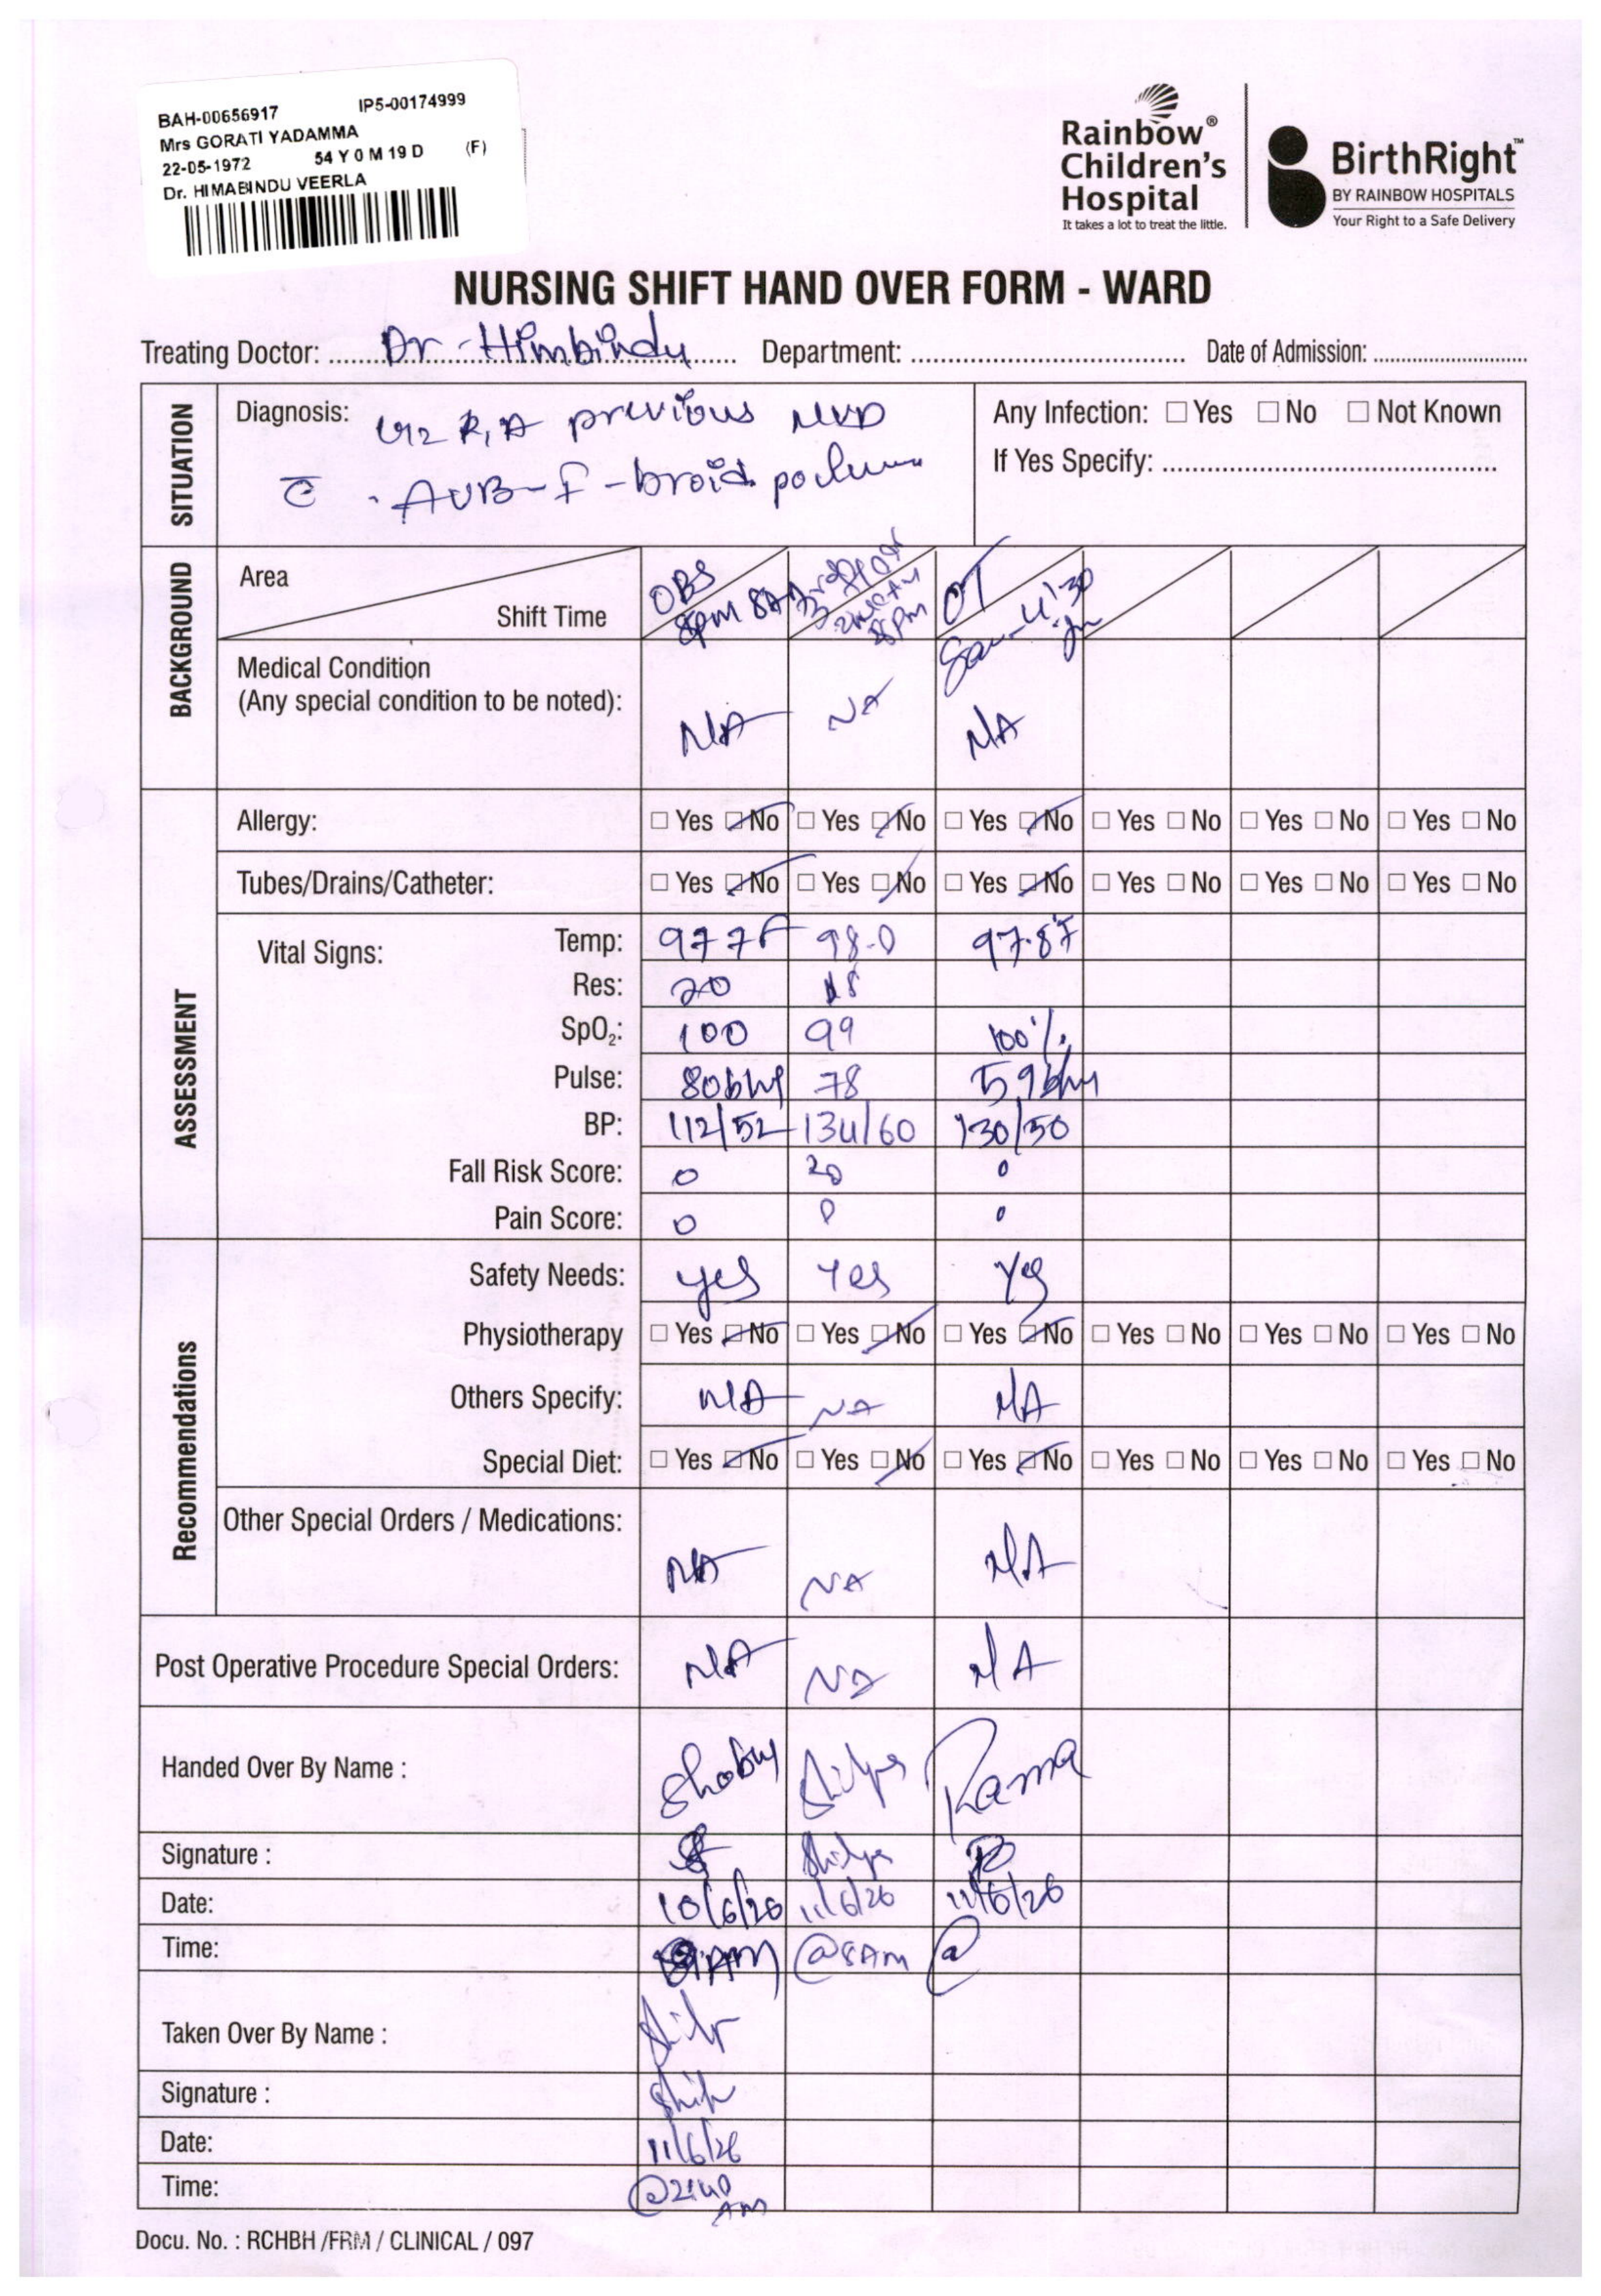 BAH-00656917 IP5-00174999
Mrs GORATI YADAMMA
22-05-1972 54 Y 0 M 19 D (F)
Dr. HIMABINDU VEERLA
Rainbow® Children's Hospital
It takes a lot to treat the little.
BirthRight™
BY RAINBOW HOSPITALS
Your Right to a Safe Delivery
NURSING SHIFT HAND OVER FORM - WARD
Treating Doctor: Dr - Himbindu Department: Date of Admission:
SITUATION
Diagnosis: previous NVD
c̄ AUB-f-broid
Any Infection: □ Yes □ No □ Not Known
If Yes Specify:
BACKGROUND
Area OBS 3rd floor OT
Shift Time 8pm 8AM 8pm
Medical Condition
(Any special condition to be noted): N/A NA N/A
ASSESSMENT
Allergy: □ Yes □ No □ Yes □ No □ Yes □ No □ Yes □ No □ Yes □ No □ Yes □ No
Tubes/Drains/Catheter: □ Yes □ No □ Yes □ No □ Yes □ No □ Yes □ No □ Yes □ No □ Yes □ No
Vital Signs: Temp: 977F 98.0 97.8°F
Res: 20 18
SpO₂: 100 99 100%
Pulse: 80bhp 78 59bhm
BP: 112/52 134/60 130/50
Fall Risk Score: 0 20 0
Pain Score: 0 0 0
Recommendations
Safety Needs: yes Yes Yes
Physiotherapy □ Yes □ No □ Yes □ No □ Yes □ No □ Yes □ No □ Yes □ No □ Yes □ No
Others Specify: N/A NA N/A
Special Diet: □ Yes □ No □ Yes □ No □ Yes □ No □ Yes □ No □ Yes □ No □ Yes □ No
Other Special Orders / Medications: NA NA N/A
Post Operative Procedure Special Orders: N/A NA N/A
Handed Over By Name : Shilpa Rama
Signature : Shilpa
Date: 10/6/26 11/6/26 11/6/26
Time: 8AM @8AM @
Taken Over By Name :
Signature :
Date: 11/6/26
Time: @2:40 AM
Docu. No. : RCHBH /FRM / CLINICAL / 097